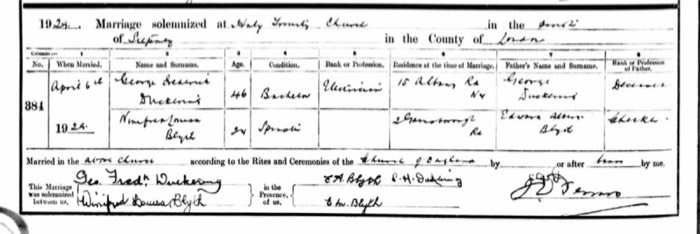 1924. Marriage solemnized at Holy Trinity Church in the Parish
of Stepney in the County of London
Columns:— 1 2 3 4 5 6 7 8
No. When Married. Name and Surname. Age. Condition. Rank or Profession. Residence at the time of Marriage. Father's Name and Surname. Rank or Profession of Father.
384 April 6th 1924. George Frederick Duckering 46 Bachelor Electrician 15 Albany Rd George Duckering Deceased
Winifred Louisa Blyth 24 Spinster 2 Gainsborough Rd Edward Blyth Checker
Married in the above Church according to the Rites and Ceremonies of the Church of England by or after Banns by me.
This Marriage was solemnized between us, Geo. Fredk Duckering
Winifred Louisa Blyth
in the Presence of us, E A. Blyth
E W. Blyth